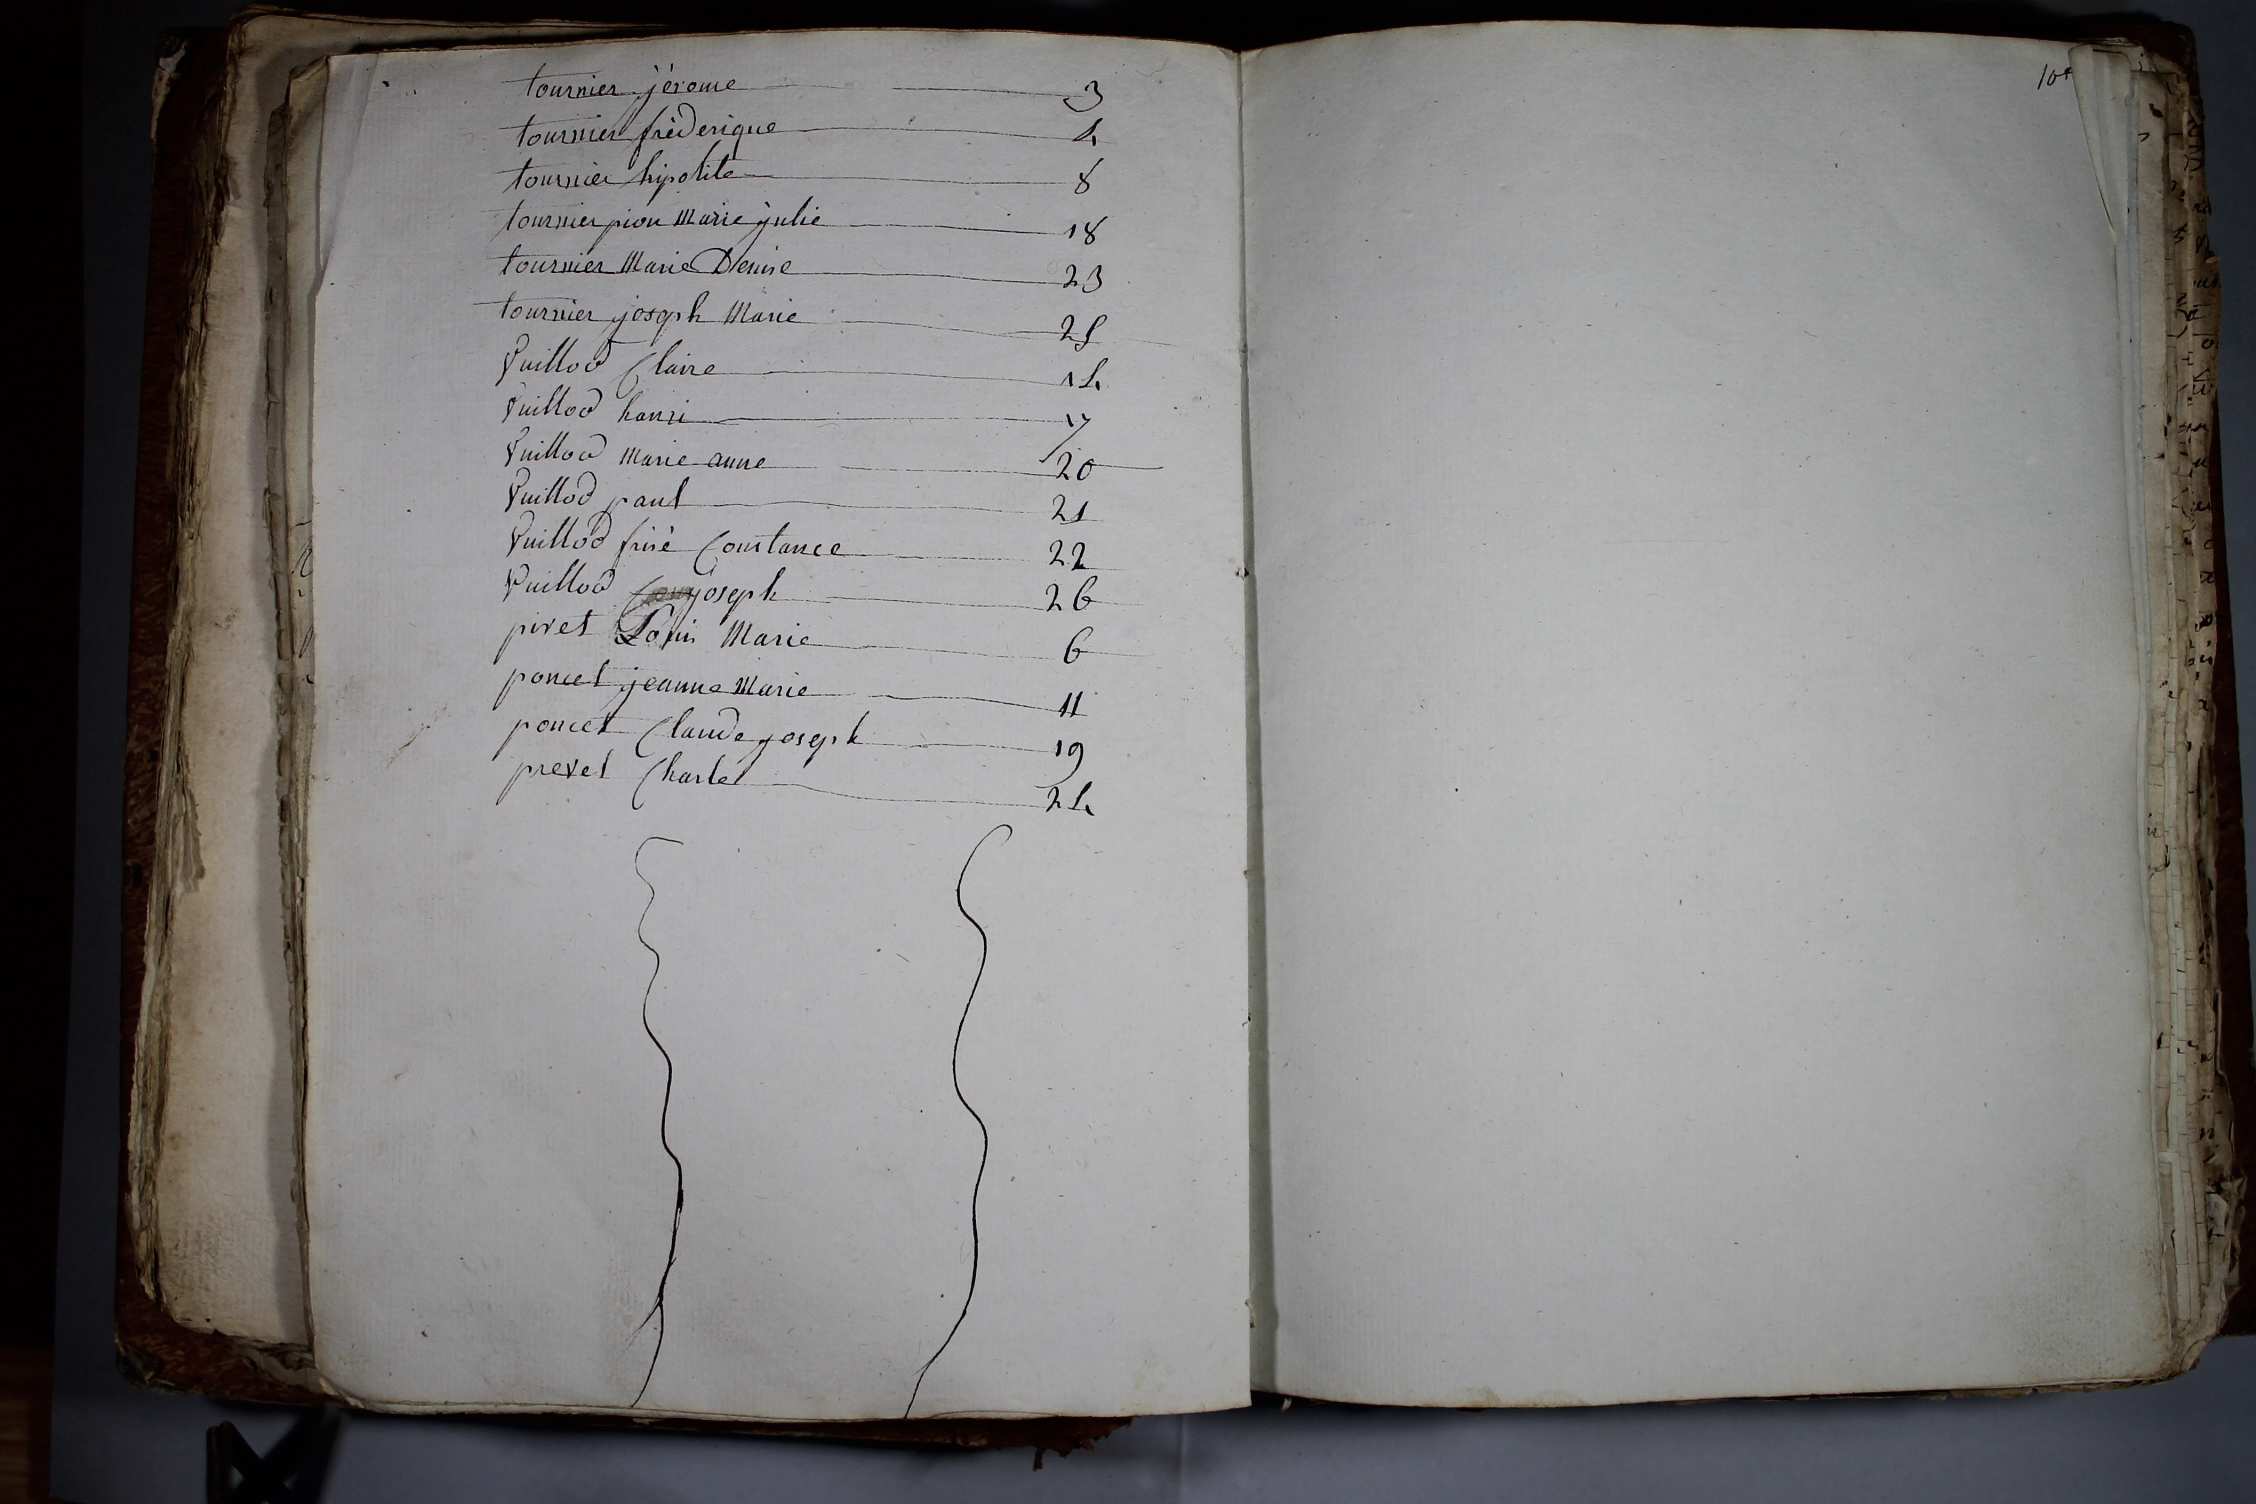 tournier jérome 3
tournier fréderique 4
tournier hipolite 8
tournier pion Marie julie 18
tournier Marie Denise 23
tournier joseph Marie 25
Vuillod Claire 14
Vuillod hanri 17
Vuillod Marie anne 20
Vuillod paul 21
Vuillod frisé Constance 22
Vuillod joseph 26
pivet Louis Marie 6
poncet jeanne Marie 11
poncet Claude joseph 19
prevet Charle 24